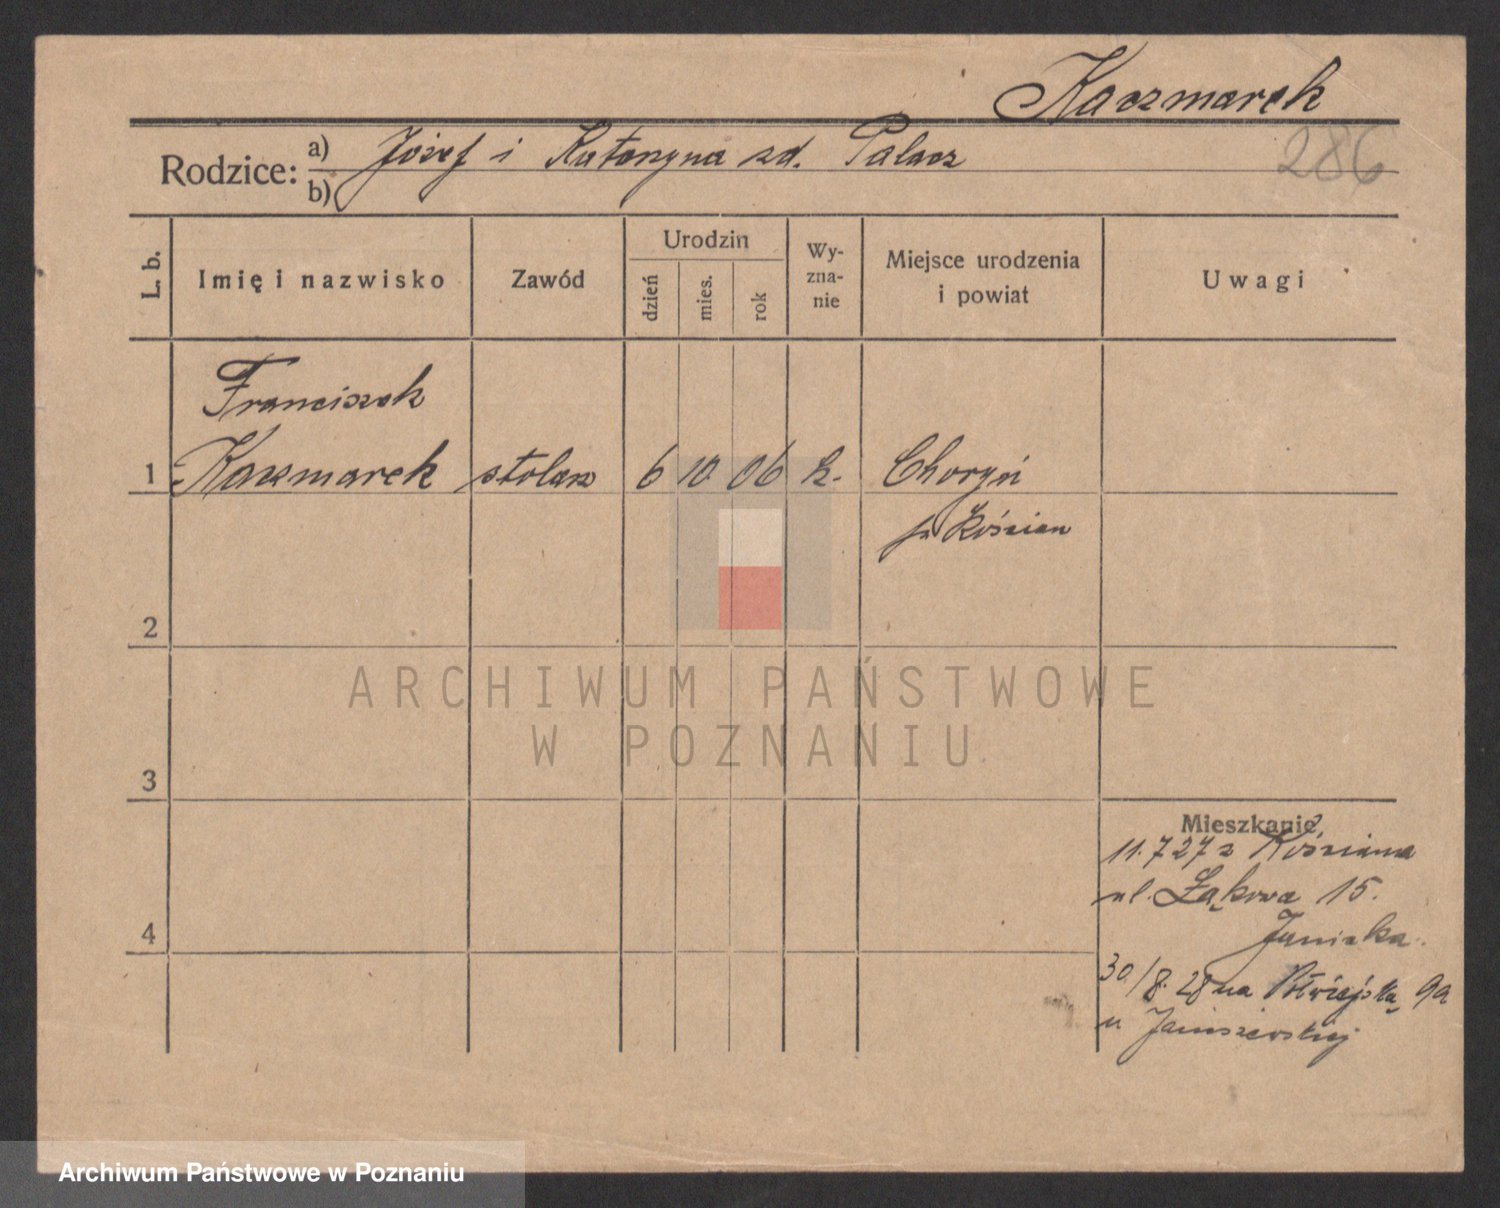 Kaczmarek
286
Rodzice: a) Józef i Katarzyna zd. Palacz
b)
L. b. Imię i nazwisko Zawód Urodzin dzień mies. rok Wy-zna-nie Miejsce urodzenia i powiat Uwagi
Franciszek
1 Kaczmarek stolarz 6 10 06 k. Choryń
p. Kościan
2
3
Mieszkanie
11.7 27 z Kościana
ul. Łąkowa 15.
4
30/8. 28 na Półwiejską 9a
u Janiszewskiej
ARCHIWUM PAŃSTWOWE
W POZNANIU
Archiwum Państwowe w Poznaniu